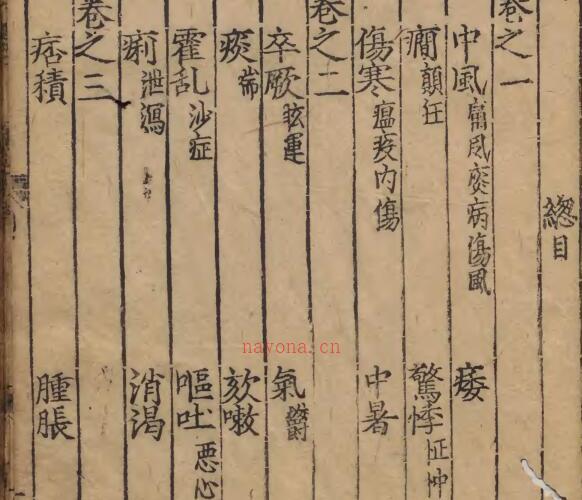 總目
卷之一
中風 風病傷風 痿
癇 顛狂 驚悸 怔忡
傷寒 瘟疫內傷 中暑
卷之二
卒厥 眩運 氣 欝
痰 喘 欬嗽
霍乱 沙症 嘔吐 惡心
痢 泄瀉 消渴
卷之三
痞積 腫脹
nayona.cn